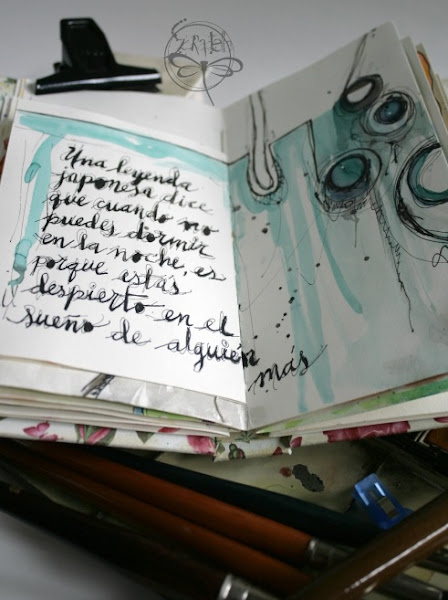 Una leyenda
japonesa dice
que cuando no
puedes dormir
en la noche, es
porque estás
despierto en el
sueño de alguien
más